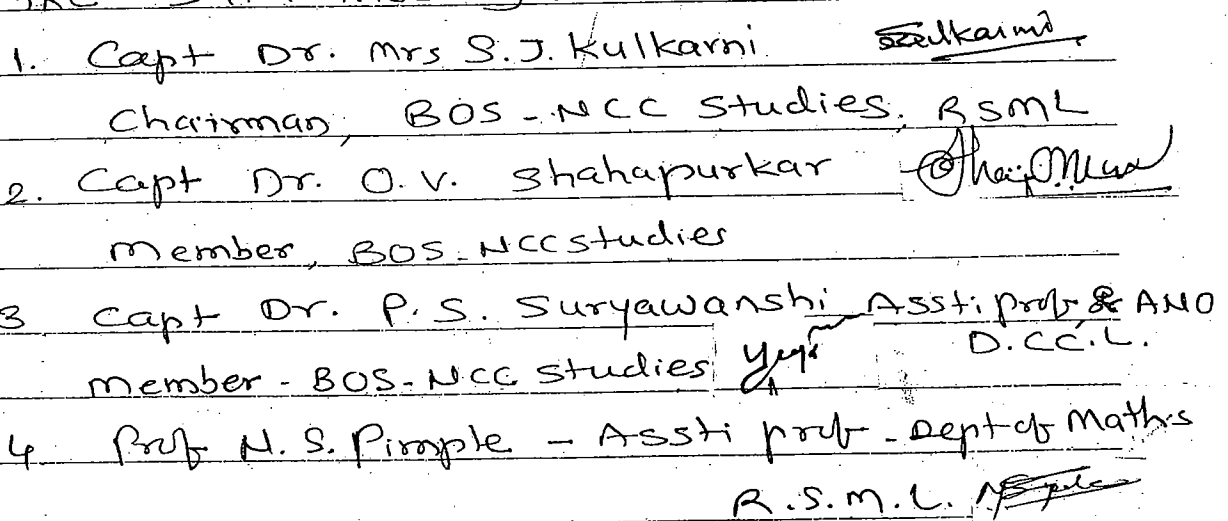 1. Capt Dr. Mrs S. J. Kulkarni
Chairman, BOS - NCC Studies, RSML
2. Capt Dr. O. V. Shahapurkar
Member, BOS - NCC Studies
3 Capt Dr. P. S. Suryawanshi Assti prof & ANO
D.C.C.L.
Member - BOS - NCC Studies
4 Prof N. S. Pimple - Assti prof - Dept of Maths
R.S.M.L.